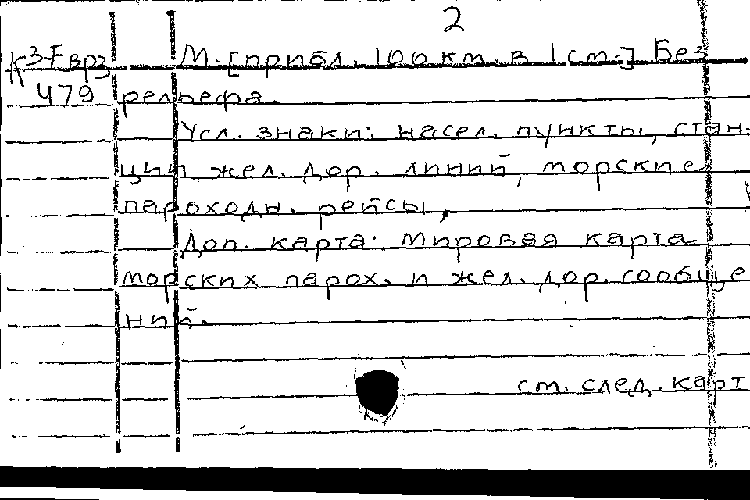 2
К 3-Евр 3 М. [прибл. 100 км. в 1 см.] Без
479 рельефа.
Усл. знаки: насел. пункты, стан-
ции жел. дор. линий, морские
пароходн. рейсы.
Доп. карта: Мировая карта
морских парох. и жел. дор. сообще
ний.
см. след. карт